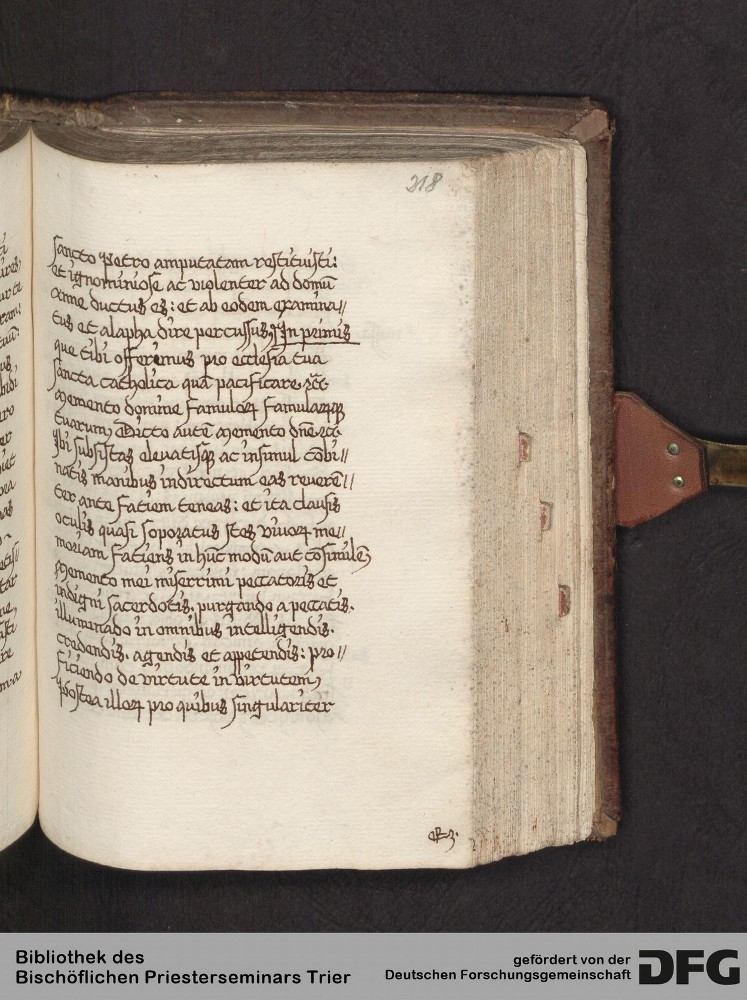 218
sancto petro amputatam restituisti:
et ignominiose ac violenter ad domū
anne ductus es: et ab eodem examina//
tus et alapha dire percussus In primis
que tibi offerimus pro ecclesia tua
sancta catholica quā pacificare ⁊cꝫ
Memento domine famuloꝝ famulaꝝqꝫ
tuarum, Dicto autē memento dn̄e ⁊cꝫ
Ibi subsistas eleuatisqꝫ ac insimul cōbi//
natis manibus indirectum eas reverē//
ter ante faciem teneas: et ita clausis
oculis quasi soporatus stes vivoꝝ me//
moriam faciens in hūc modū aut cōsimilem,
Memento mei miserrimi peccatoris et
indigni sacerdotis. purgando a peccatis.
illuminādo in omnibus intelligendis.
credendis. agendis et appetendis: pro//
ficiendo de virtute in virtutem,
postea illoꝝ pro quibus singulariter
Bibliothek des
Bischöflichen Priesterseminars Trier
gefördert von der
Deutschen Forschungsgemeinschaft
DFG